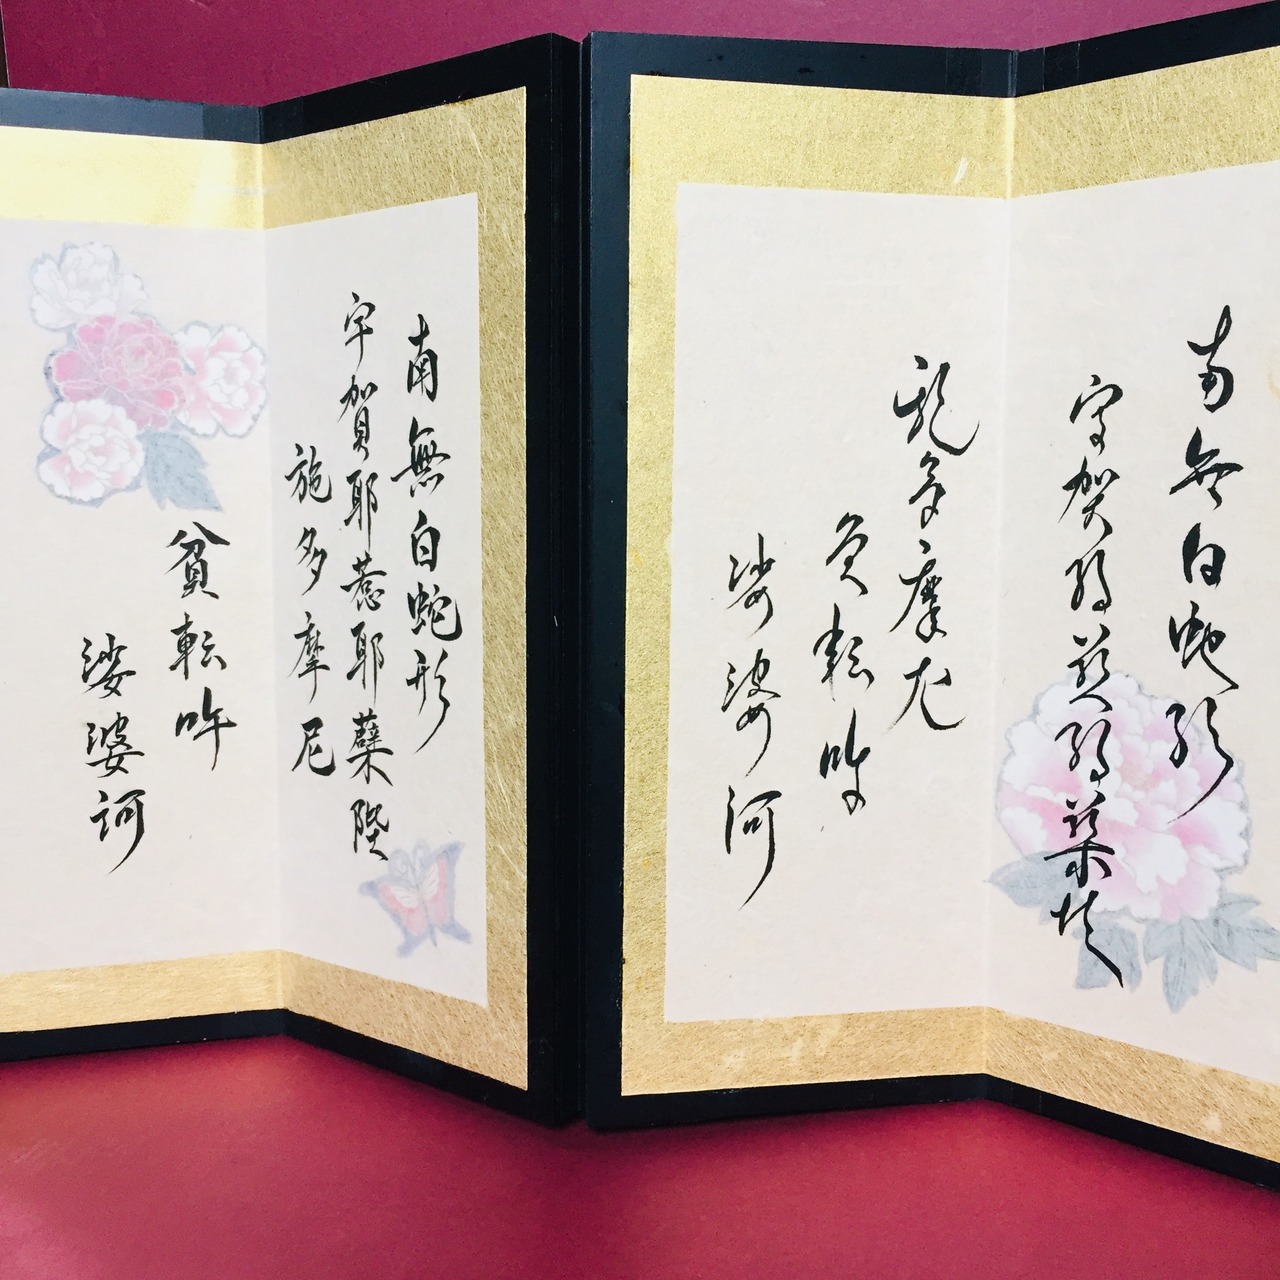 南無白蛇形
宇賀耶惹耶蘗陛
施多摩尼
貧転吽
娑婆訶
南無白蛇形
宇賀耶惹耶蘗陛
施多摩尼
貧転吽
娑婆訶